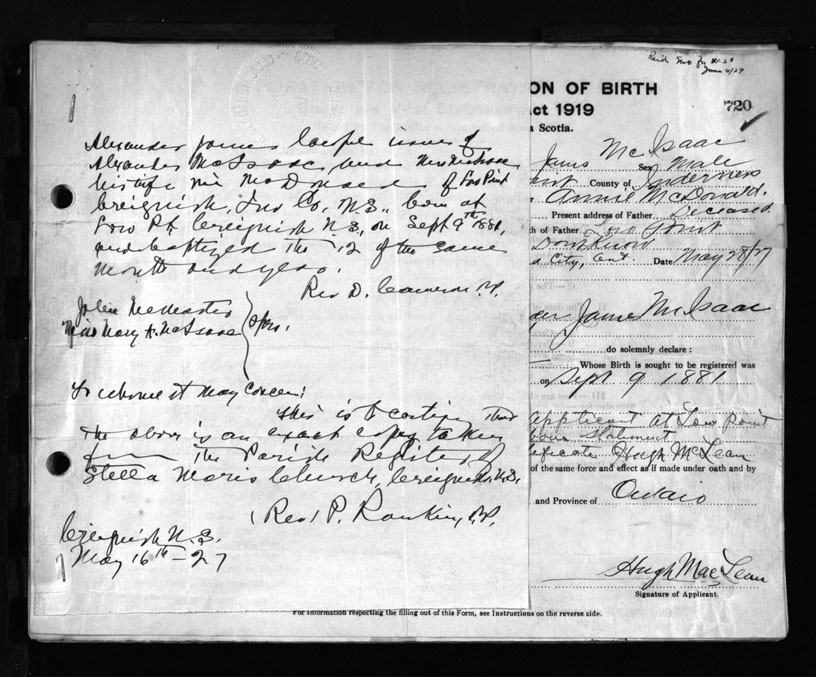 ON OF BIRTH
ct 1919
720
a Scotia.
James McIsaac
Sex Male
County of Inverness
Annie McDonald.
Present address of Father Deceased
h of Father Low Point
Dominion
d City, Ont. Date May 28/27
James McIsaac
do solemnly declare :
Whose Birth is sought to be registered was
on Sept 9 1881
applicant at Low Point
above statement
Hugh McLean
of the same force and effect as if made under oath and by
and Province of Ontario
Hugh MacLean
Signature of Applicant.
For information respecting the filling out of this Form, see Instructions on the reverse side.
Alexander James issue of
Alexander McIsaac and
his wife nee McDonald of Low Point
Creignish, Inv Co. N.S., born at
Low Pt. Creignish N.S., on Sept 9th 1881,
and baptized the 12 of the same
month and year.
Rev D. Cameron P.P.
John McMaster
Miss Mary A. McIsaac
Spon.
To whom it may concern:
This is to certify that
the above is an exact copy taken
from the Parish Register of
Stella Maris Church, Creignish, N.S.
(Rev) P. Rankin, P.P.
Creignish N.S.
May 16th - 27